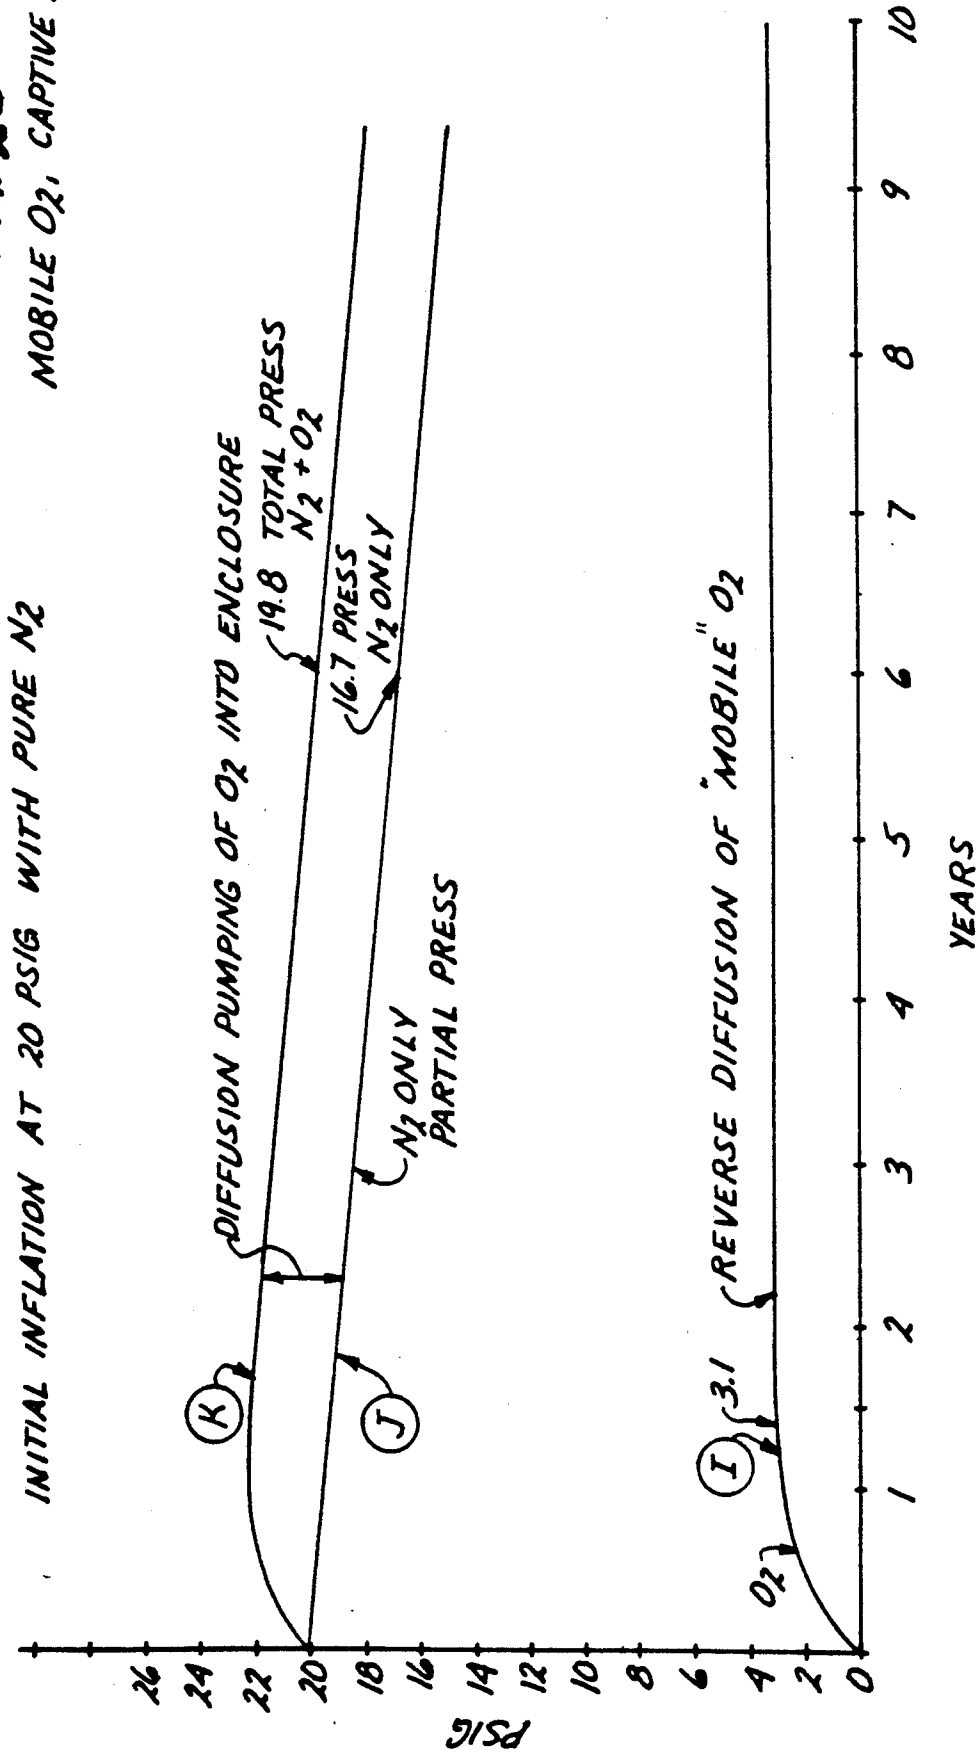 MOBILE O2, CAPTIVE
INITIAL INFLATION AT 20 PSIG WITH PURE N2
DIFFUSION PUMPING OF O2 INTO ENCLOSURE
19.8 TOTAL PRESS
N2 + O2
16.7 PRESS
N2 ONLY
K
J
N2 ONLY
PARTIAL PRESS
I
3.1
REVERSE DIFFUSION OF "MOBILE" O2
O2
PSIG
26
24
22
20
18
16
14
12
10
8
6
4
2
0
1
2
3
4
5
6
7
8
9
10
YEARS